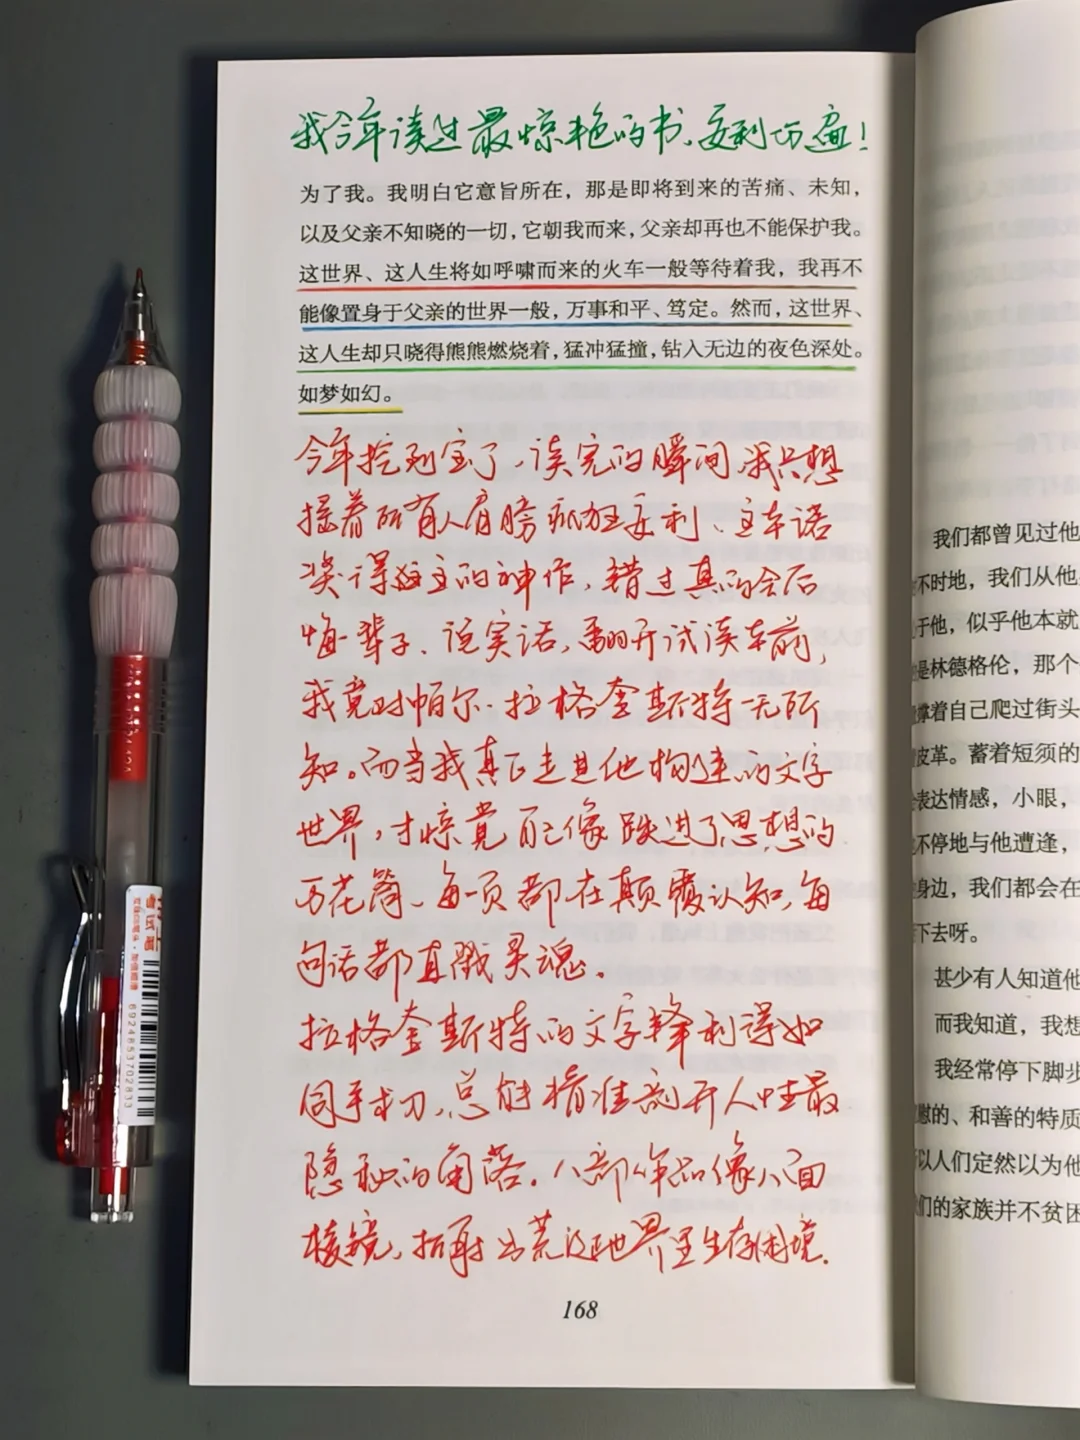 我今年读过最惊艳的书、安利万遍！
为了我。我明白它意旨所在，那是即将到来的苦痛、未知，
以及父亲不知晓的一切，它朝我而来，父亲却再也不能保护我。
这世界、这人生将如呼啸而来的火车一般等待着我，我再不
能像置身于父亲的世界一般，万事和平、笃定。然而，这世界、
这人生却只晓得熊熊燃烧着，猛冲猛撞，钻入无边的夜色深处。
如梦如幻。
今年挖到宝了，读完的瞬间，我只想
摇着所有人肩膀疯狂安利、这本诺
奖得主的神作，错过真的会后
悔一辈子、说实话，翻开试读本前，
我竟对帕尔·拉格奎斯特一无所
知。而当我真正走进他构建的文字
世界，才惊觉自己像跌进了思想的
万花筒、每一页都在颠覆认知，每
句话都直戳灵魂。
拉格奎斯特的文字锋利得如
同手术刀，总能精准剖开人性最
隐秘的角落。八部作品像八面
棱镜，折射出荒诞世界里生存困境.
168
我们都曾见过他
不时地，我们从他
于他，似乎他本就
是林德格伦，那个
撑着自己爬过街头
皮革。蓄着短须的
表达情感，小眼，
不停地与他遭逢，
身边，我们都会在
下去呀。
甚少有人知道他
而我知道，我想
我经常停下脚步
慰的、和善的特质
以人们定然以为他
们的家族并不贫困
考试篇
6924853702833